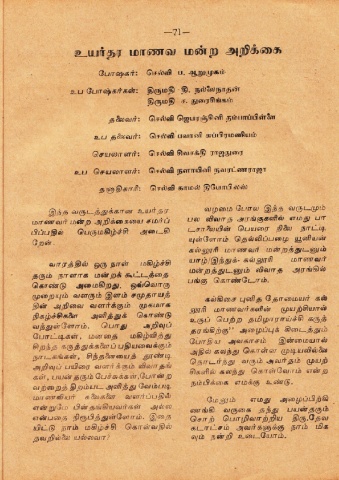 —71—
உயர்தர மாணவ மன்ற அறிக்கை
போஷகர்: செல்வி ப. ஆறுமுகம்
உப போஷகர்கள்: திருமதி தி. நல்லைநாதன்
திருமதி ச. துரைசிங்கம்
தலைவர்: செல்வி ஜெயரஞ்சினி தம்பாப்பிள்ளை
உப தலைவர்: செல்வி பவானி சுப்பிரமணியம்
செயலாளர்: செல்வி சிவசக்தி ராஜதுரை
உப செயலாளர்: செல்வி நளாயினி நவரட்ணராஜா
தனாதிகாரி: செல்வி கமலி
இந்த வருடத்துக்கான உயர்தர
மாணவர் மன்ற அறிக்கையை சமர்ப்
பிப்பதில் பெருமகிழ்ச்சி அடைகி
றேன்.
வாரத்தில் ஒரு நாள் மகிழ்ச்சி
தரும் நாளாக மன்றக் கூட்டத்தை
கொண்டு அமைகிறது. ஒவ்வொரு
முறையும் வளரும் இளம் சமுதாயத்
தின் அறிவை வளர்க்கும் முகமாக
நிகழ்ச்சிகளை அளித்துக் கொண்டு
வந்துள்ளோம். பொது அறிவுப்
போட்டிகள், மனதை மகிழ்வித்து
சிறந்த கருத்துக்களைப் பதியவைக்கும்
நாடகங்கள், சிந்தனையைத் தூண்டி
அறிவுப் பயிரை வளர்க்கும் விவாதங்
கள், பயன்தரும் பேச்சுக்கள், போன்ற
வற்றைத் திறம்பட அளித்து வேம்படி
மாணவியர் கலைகளை வளர்ப்பதில்
என்றுமே பின்தங்கியவர்கள் அல்ல
என்பதை நிரூபித்துள்ளோம். இதை
யிட்டு நாம் மகிழ்ச்சி கொள்வதில்
தவறில்லை யல்லவா?
வழமை போல இந்த வருடமும்
பல விவாத அரங்குகளில் எமது பா
டசாலையின் பெயரை நிலை நாட்டி
யுள்ளோம். தெல்லிப்பழை யூனியன்
கல்லூரி மாணவர் மன்றத்துடனும்
யாழ்/இந்துக் கல்லூரி மாணவர்
மன்றத்துடனும் விவாத அரங்கில்
பங்கு கொண்டோம்.
கல்கிசை புனித தோமையர் கல்
லூரி மாணவர்களின் முயற்சியால்
உருப் பெற்ற தமிழாராய்ச்சி கருத்
தரங்கிற்கு" அழைப்புக் கிடைத்தும்
போதிய அவகாசம் இன்மையால்
அதில் கலந்து கொள்ள முடியவில்லை
தொடர்ந்து வரும் அவர்தம் முயற்
சிகளில் கலந்து கொள்வோம் என்ற
நம்பிக்கை எமக்கு உண்டு.
மேலும் எமது அழைப்பிற்கி
ணங்கி வருகை தந்து பயன்தரும்
சொற் பொழிவாற்றிய திரு. தேவ
கடாட்சம் அவர்களுக்கு நாம் மிக
வும் நன்றி உடையோம்.